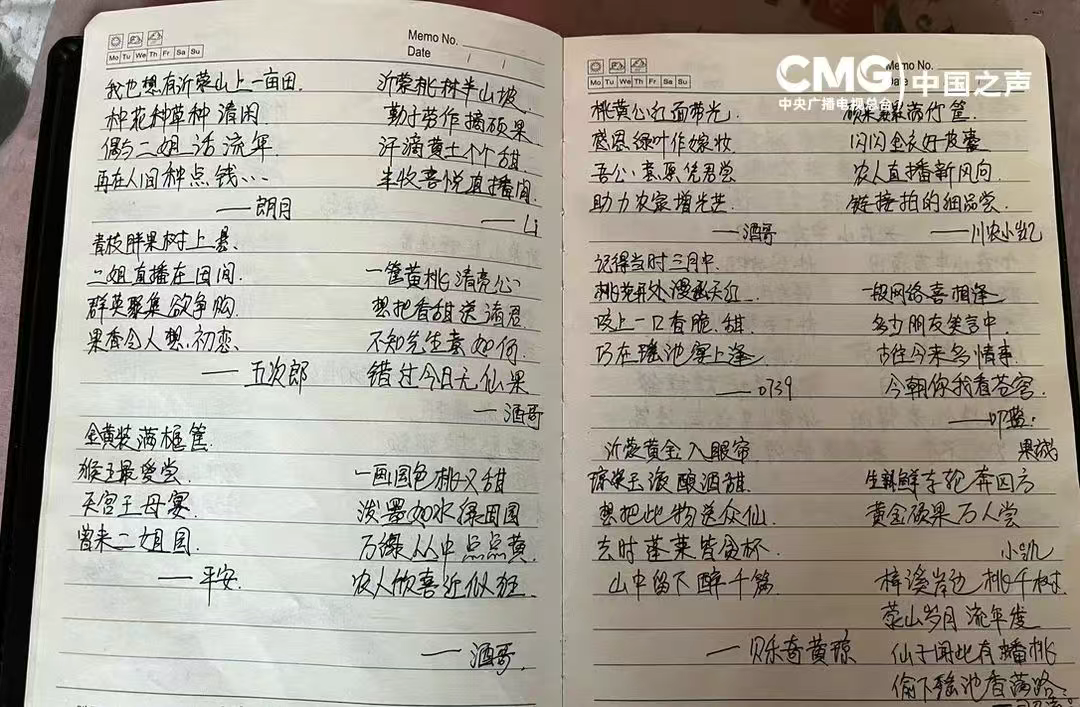 Memo No.
Date
Mo Tu We Th Fr Sa Su
我也想有沂蒙山上一亩田.
种花种草种清闲.
偶与二姐话流年.
再在人间种点钱...
——朗月
青枝胖果树上悬、
二姐直播在田间.
群英聚集欲争购
果香令人想初恋、
——五次郎
金黄装满框筐.
猴王最爱尝.
天宫王母宴.
曾来二姐园.
——平安.
沂蒙桃林半山坡.
勤于劳作摘硕果
汗滴黄土个个甜.
丰收喜悦直播间.
——Li
一筐黄桃清亮心
想把香甜送诸君.
不知先生意如何.
错过今日无仙果
——酒哥
一画国色桃又甜
泼墨如水绿田园
万绿丛中点点黄.
农人欣喜近似狂.
——酒哥.
CMG 中国之声
中央广播电视总台
Memo No.
Date
Mo Tu We Th Fr Sa Su
桃黄公红面带光.
感恩绿叶作嫁妆
助力农家增光芒.
——酒哥
记得当时三月中.
桃花开处漫天红.
咬上一口香脆、甜.
巧在瑶池宴上逢
——0739
沂蒙黄金入眼帘
琼浆玉液酿酒甜.
想把此物送众仙.
去时蓬莱皆贪杯.
山中留下醉千篇.
——贝乐奇黄琼
硕果累累满竹筐.
闪闪金衣好皮囊
农人直播新风向.
链接拍的细品尝.
——川农小凯
一段网络喜相逢
多少朋友笑言中.
古往今来多情事.
今朝你我看苍穹.
果城
生鲜鲜车轮奔四方
黄金硕果万人尝
小凯
梓溪岸边桃千树.
蒙山岁月流年度
仙子闻此有播桃
偷下瑶池香满路.